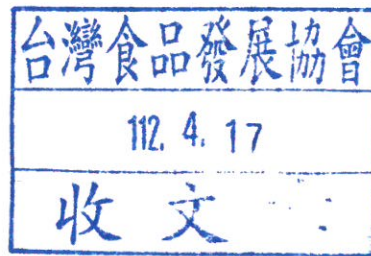 台灣食品發展協會
112. 4. 17
收文